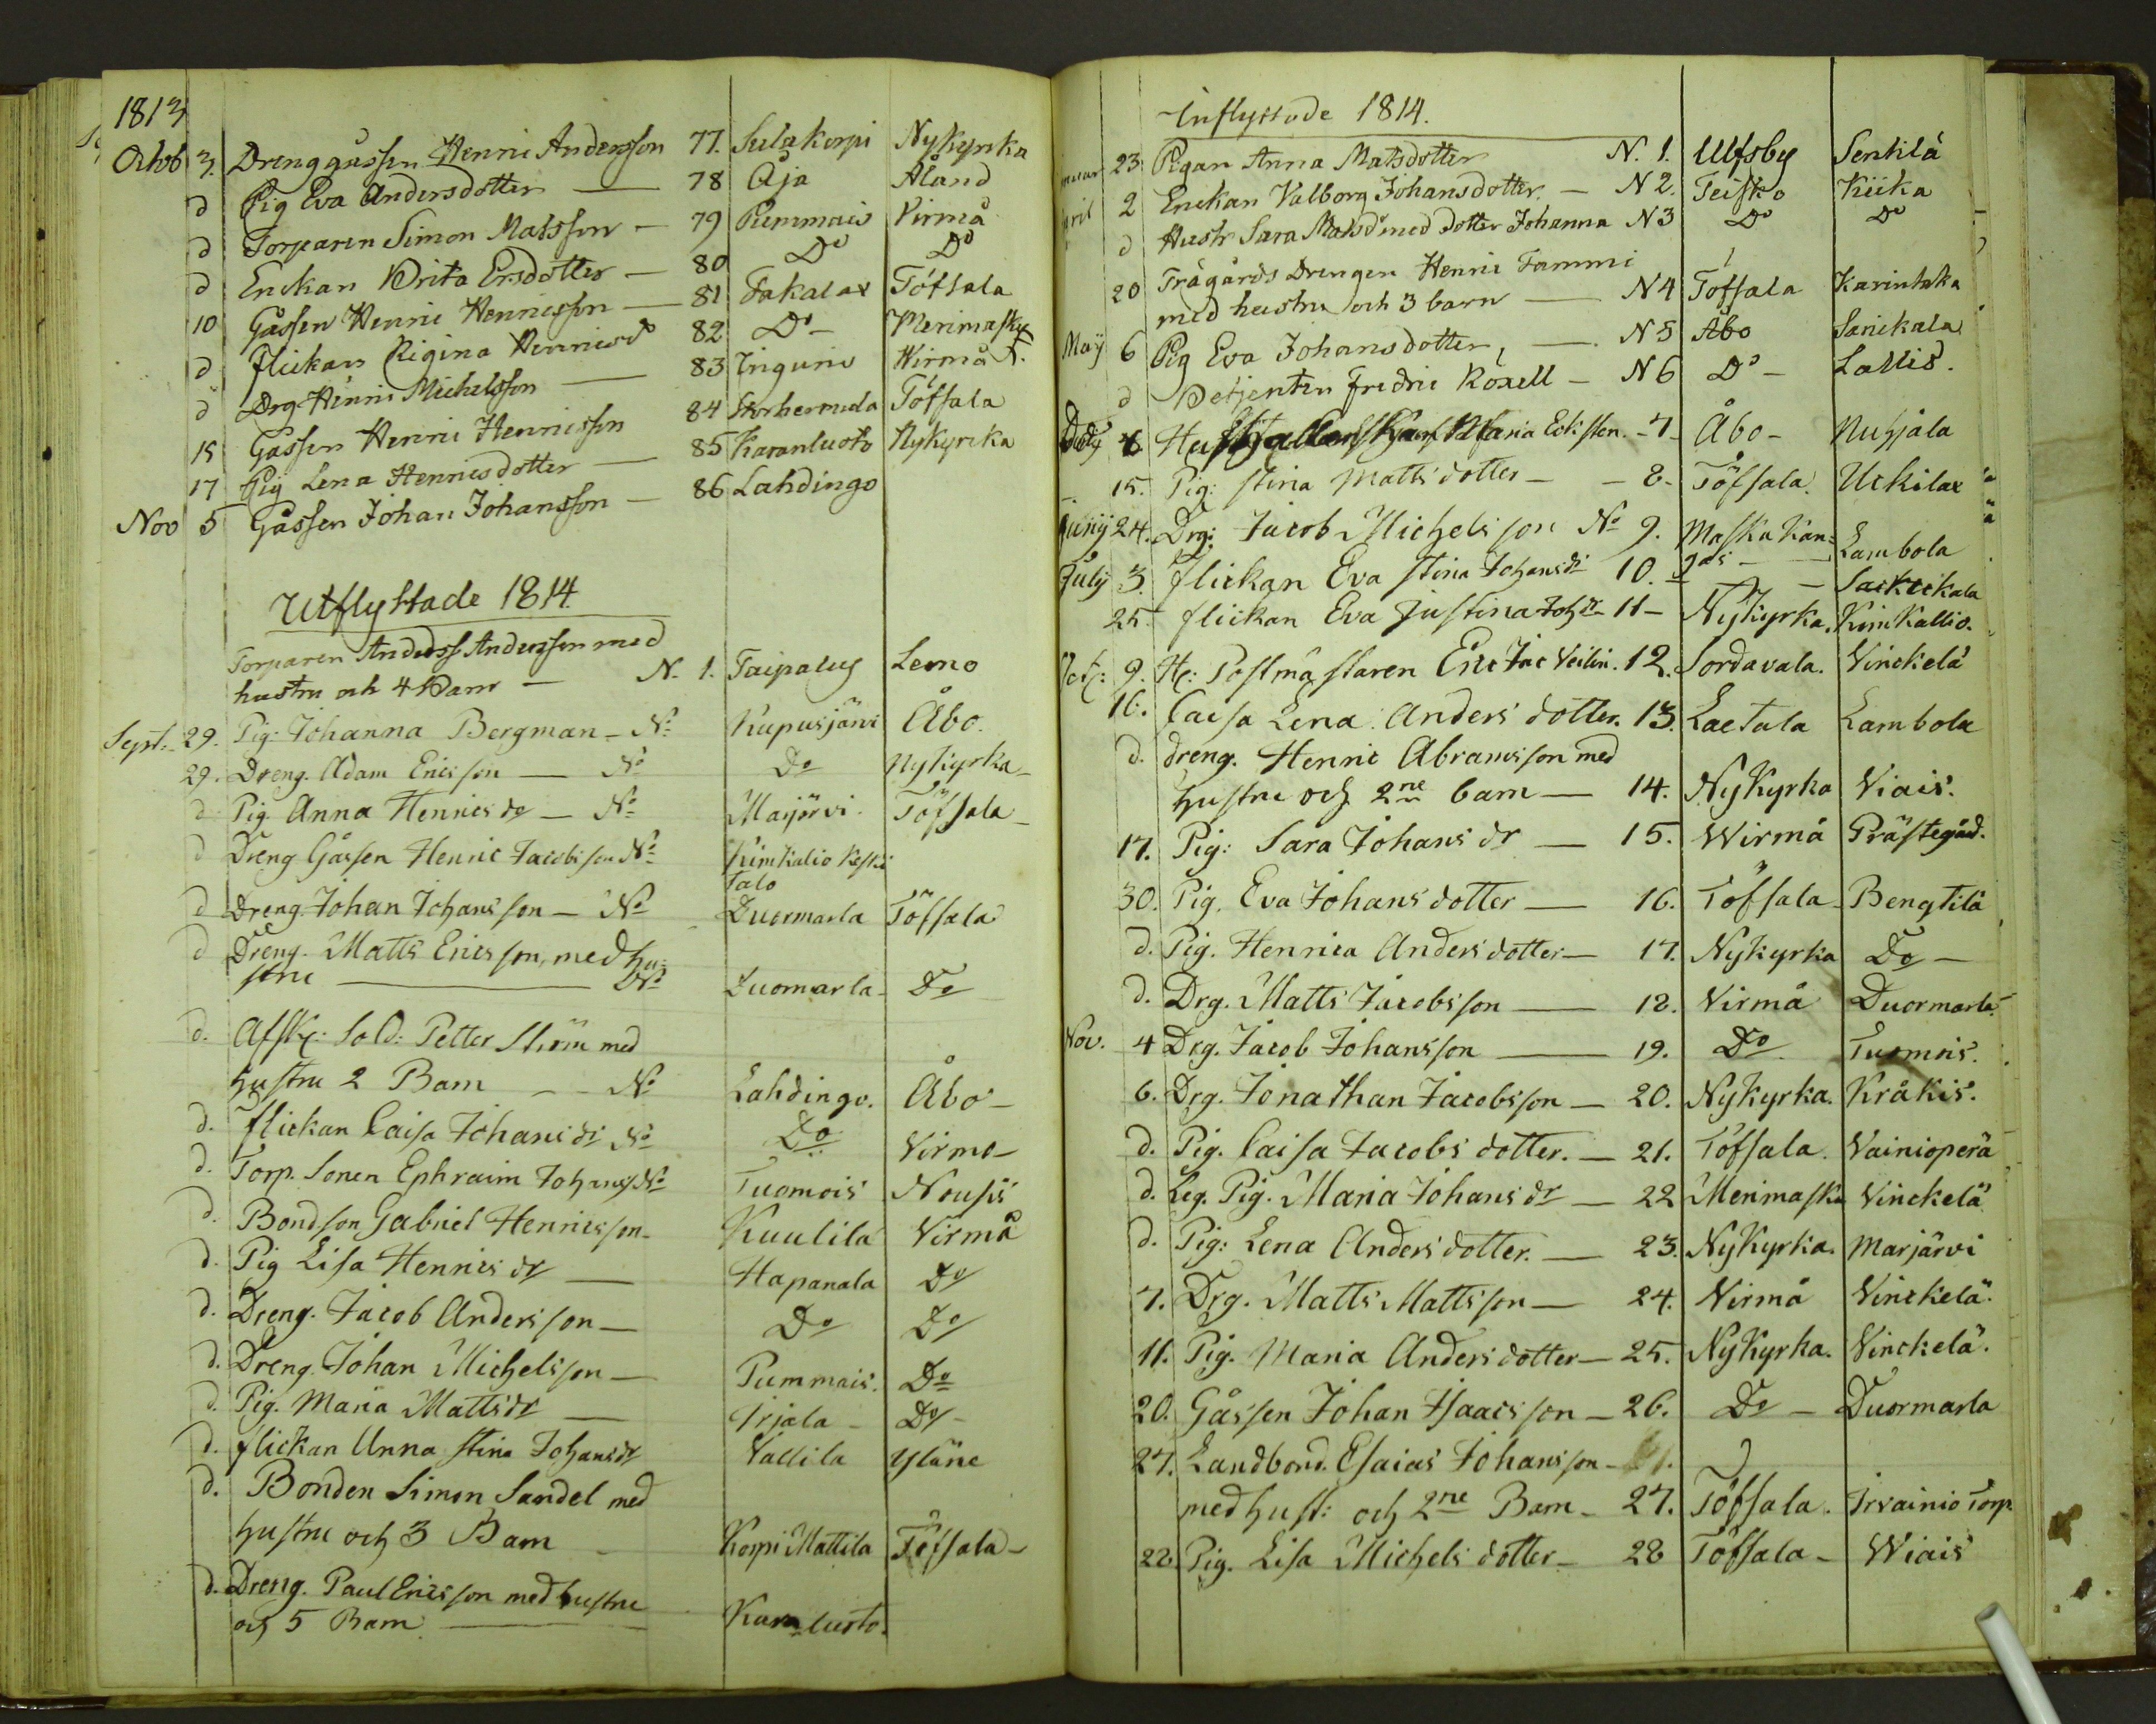 1813
Octob 3. Drenggåssen Henric Andersson 77. Sulakorpi Nykyrka
d Pig Eva Andersdotter — 78 Oja Åland
d Torparen Simon Matsson — 79 Pummais Virmå
d Enckan Brita Ersdotter — 80 Do Do
10 Gåssen Henric Henricsson — 81 Takalax Töfsala
d Flickan Rigina Henricsd 82 Do — Merimasku
d Drg Henric Michelsson — 83 Inguris Wirmå
15 Gåssen Henric Henricsson 84 Storhermula Töfsala
17 Pig Lena Henricsdotter — 85 Karanluoto Nykyrcka
Nov 5 Gåssen Johan Johansson — 86 Lahdingo
Utflyttade 1814
Torparen Anderss Andersson med
hustru och 4 Barn — N. 1. Taipaluş Lemo
Sept. 29. Pig: Johanna Bergman — No Kupusjärvi Åbo
29. Dreng. Adam Ericsson — No Do Nykyrka —
d Pig. Anna Henricsdr — No Marjärvi Töfsala —
d Dreng Gåssen Henric Jacobsson No Kimkalio Keski
talo
d Dreng. Johan Johansson — No Duormarla Töfsala
d Dreng. Matts Ericsson, med hu-
stru — No Duomarla — Do
d. Afsk: Sold: Petter Ström med
hustru 2 Barn — No Lahdingo. Åbo —
d. flickan Caisa Johansdr No Do Virmo —
d. Torp. Sonen Ephraim Johanss No Tuomois Nousis
d. Bondson Gabriel Henricsson — Kuulila Virmå
d. Pig Lisa Henricsdr — Hapanala Do
d. Dreng. Jacob Andersson — Do Do
d. Dreng. Johan Michelsson — Pummais. Do
d. Pig. Maria Mattsdr — Irjala — Do —
d. flickan Anna Stina Johansdr Vallila Yläne
d. Bonden Simon Sandel med
hustru och 3 Barn — Korpi Mattila Töfsala —
d. Dreng. Paul Ericsson med hustru
och 5 Barn — Karaluoto.
Inflyttade 1814.
23 Pigan Anna Matsdotter N. 1. Ulfsby Senkilä
2 Enckan Valborg Johansdotter — N 2. Teisko Kiika
d Hustr Sara Matsd med dotter Johanna N 3 Do Do
20 Trägårds Drengen Henric Tammi
med hustru och 3 barn — N 4 Töfsala Karintaka
Maÿ 6 Pig Eva Johansdotter, — N 5 Åbo Sarickala
d Betjenten Fredric Roxell — N 6 Do — Lallis.
6 Maria Ecksten. — 7 — Åbo — Nuhjala
15. Pig: Stina Mattsdotter — — 8 — Töfsala. Uckilax
Junÿ 24. Drg: Jacob Michelsson No 9. Masku Kan=
gas — Lambola
Julÿ 3. flickan Eva Stina Johansdr 10. — — Sarkickala
25. flickan Eva Justina Johdr — 11 — Nykyrka. Kimkallio.
Oct: 9. Hr: Postmästaren Eric Jac Veilin. 12. Sordavala. Vinckelä
16. Caisa Lena Andersdotter. 13. Laetala Lambola
d. dreng. Henric Abramsson med
hustru och 2ne barn — 14. Nykyrka Viais.
17. Pig: Sara Johansdr — 15. Wirmå Prästegård.
30. Pig. Eva Johansdotter — 16. Töfsala Bengtilä
d. Pig. Henrica Andersdotter — 17. Nykyrka Do —
d. Drg. Matts Jacobsson — 18. Virmå Duormarla
Nov. 4 Drg. Jacob Johansson — 19. Do Tuomois.
6. Drg. Jonathan Jacobsson — 20. Nykyrka. Kråkis.
d. Pig. Caisa Jacobsdotter. — 21. Töfsala. Vainioperä
d. Leg. Pig. Maria Johansdr — 22 Merimasku Vinckelä
d. Pig: Lena Andersdotter. — 23. Nykyrka. Marjärvi
7. Drg. Matts Mattsson — 24. Virmå Vinckelä.
11. Pig. Maria Andersdotter — 25. Nykyrka. Vinckelä.
20. Gåssen Johan Isaacsson — 26. Do — Duormarla
27. Landbond. Esaias Johansson —
med hust: och 2ne Barn — 27. Töfsala. Irvainio Torp
28. Pig. Lisa Michelsdotter — 28 Töfsala — Wiais